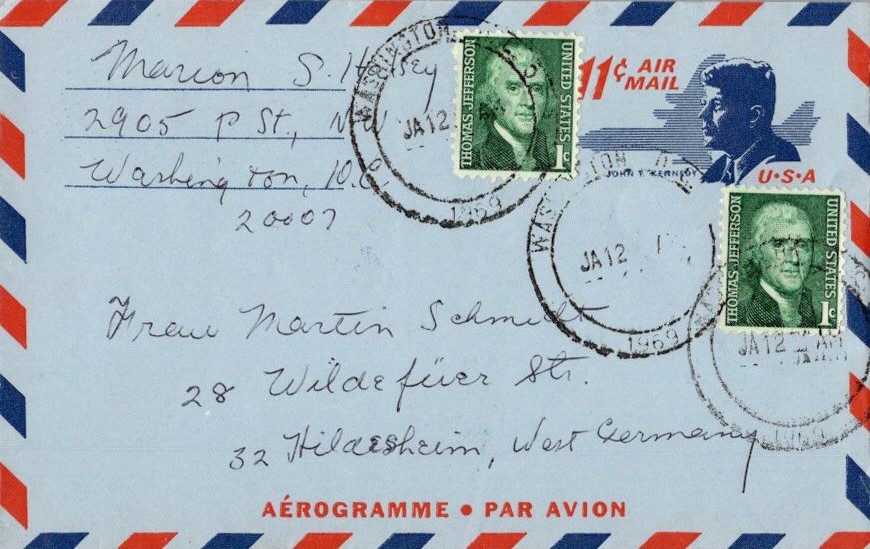 Marion S. Hersey
2905 P St., NW
Washington, D.C.
20007
WASHINGTON, D.C.
JA 12 AM
1969
THOMAS JEFFERSON
UNITED STATES
1c
11¢ AIR
MAIL
JOHN F. KENNEDY
U·S·A
WASHINGTON D.C.
JA 12
1969
THOMAS JEFFERSON
UNITED STATES
1c
JA 12 AM
1969
Frau Martin Schmidt
28 Wildefüer Str.
32 Hildesheim, West Germany
AÉROGRAMME • PAR AVION